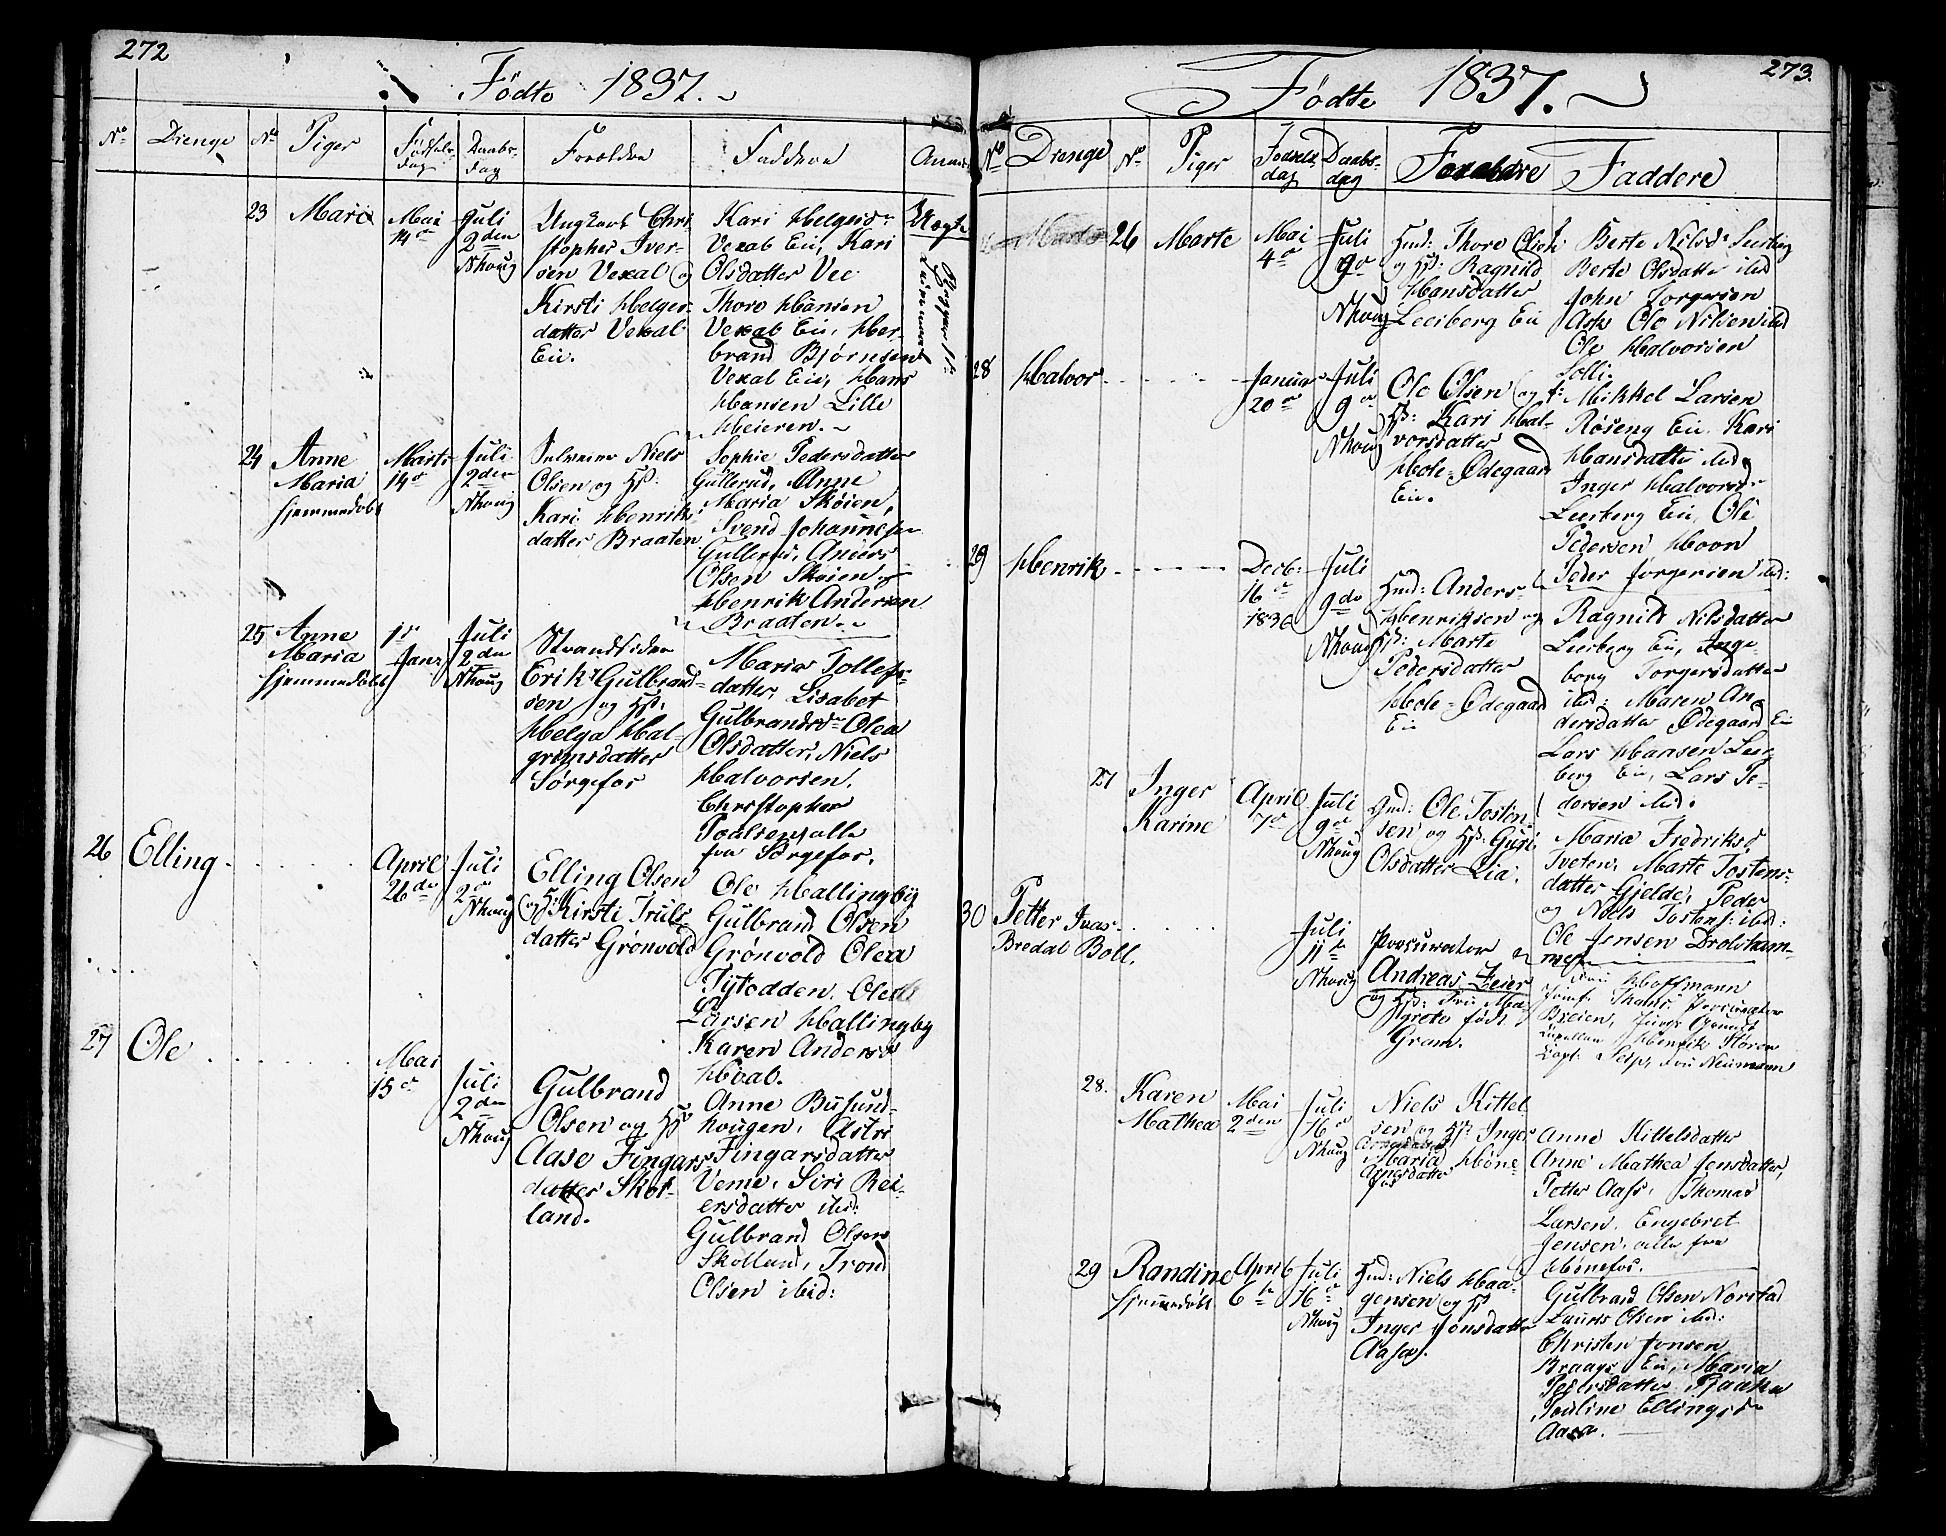 272
Födte 1837.
No Drenge No Piger Födsels-dag Daabs-dag Forældre Faddere Anm
23 Mari Mai 14de Juli 2den Nhoug
Ungkarl Chri
stopher Iver-
sen Vexal og
Kirsti Helges-
datter Vexal
Eie.
Kari Helgesdr
Vexal Eie, Kari
Olsdatter Vee
Thore Hansen
Vexal Eie, Her-
brand Bjørnsen
Vexal Eie, Hans
Hansen Lille
Heieren.
Uægte
24 Anne
Maria
hjemmedøbt
Marts
14de
Juli
2den
Nhoug
Niels
Olsen og Hst:
Kari Henriks-
datter Braaten
Sophie Pedersdatter
Gullerud, Anne
Maria Skøien,
Svend Johannesen
Gullerud, Anders
Olsen Skøien og
Henrik Andersen
Braaten.
25 Anne
Maria
hjemmedøbt
1ste
Janr
Juli
2den
Nhoug
Strandsidder
Erik Gulbrand-
sen og Hst:
Helga Hal-
grimsdatter
Sørgefos
Maria Tollefs-
datter, Lisabet
Gulbrandsdr Olea
Olsdatter, Niels
Halvorsen,
Christopher
Paalsen, alle
fra Sørgefos.
26 Elling
April
26de
Juli
2de
Nhoug
Elling Olsen
og H: Kirsti Truls
datter Grönvold
Ole Hallingby
Gulbrand Olsen
Grönvold Olea
Tytodden, Ole
Larsen Hallingby
Karen Andersd
Hoab.
27 Ole
Mai
15de
Juli
2den
Nhoug
Gulbrand
Olsen og Hst
Aase Fingars
datter Skol-
land.
Anne Busund-
hougen, Astri
Fingarsdatter
Veme, Siri Rei-
ersdatter ibid:
Gulbrand Olsen
Skolland, Trond
Olsen ibid:
273.
Födte 1837.
No Drenge No Piger Födsels dag Daabs-dag Forældre Faddere
26 Marte
Mai
4de
Juli
9de
Nhoug
Hmd: Thore Olsen
og Hst: Ragnild
Hansdatter
Leeiberg Eie
Berte Nilsdr
Berte Olsdatter ibid
John Torgersen
Ask Ole Nilsen ibid
Ole Halvorsen
Solli.
28 Halvor
Januar
20de
Juli
9de
Nhoug
Ole Olsen og
Hst: Kari Hal-
vorsdatter
Hole-Ødegaard
Eie.
Mikkel Larsen
Røseng Eie, Kari
Hansdatter ibid,
Inger Halvorsdr
Leeberg Eie, Ole
Pedersen Hoon
Peder Jorgersen ibid:
29 Henrik
Decb:
16de
1836
Juli
9de
Nhoug
Hmd: Anders
Henriksen og
Hst: Marte
Pedersdatter
Hole-Ødegaard
Eie
Ragnild Nilsdatter
Leeberg Eie, Inge-
borg Torgersdatter
ibid: Maren An-
dersdatter Ødegaard Eie
Lars Hansen Lee-
berg Eie, Lars Pe-
dersen ibid:
27 Inger
Karine
April
7de
Juli
9de
Nhoug
Gmd: Ole Josten-
sen og Hst: Guri
Olsdatter Lia.
Maria Fredriksd
Tveten, Marte Jostens-
datter Gjelde, Peder
og Niels Jostens: ibid:
Ole Jensen Drolsham-
mer
30 Petter Ivar
Bredal Boll.
Juli
11te
Nhoug
Procurator
Andreas Zeier
og Hst: Fru Ma-
grete född
Gram.
Fru Hoffmann
Jomfr. Thams Procurator
Breien,
Henrik Støren
Capt: Seip, Fru Neumann
28. Karen
Mathea
Mai
2den
Juli
16de
Nhoug
Niels Kittel
sen og Hst: Inger
Maria Höne-
Arnesdatter
fos
Anne Kittelsdatter
Anne Mathea Jensdatter,
Petter Aass, Thomas
Larsen, Engebret
Jensen, alle fra
Hönefos.
29 Randine
hjemmedøbt
April
6te
Juli
16de
Nhoug
Hmd: Niels Haa-
gensen og Hst
Inger Jonsdatter
Aasa.
Gulbrand Olsen Norstad
Laurs Olsen ibid:
Christen Jonsen
Braager Eie, Maria
Pedersdatter
Pauline Ellingsdr
Aasa.